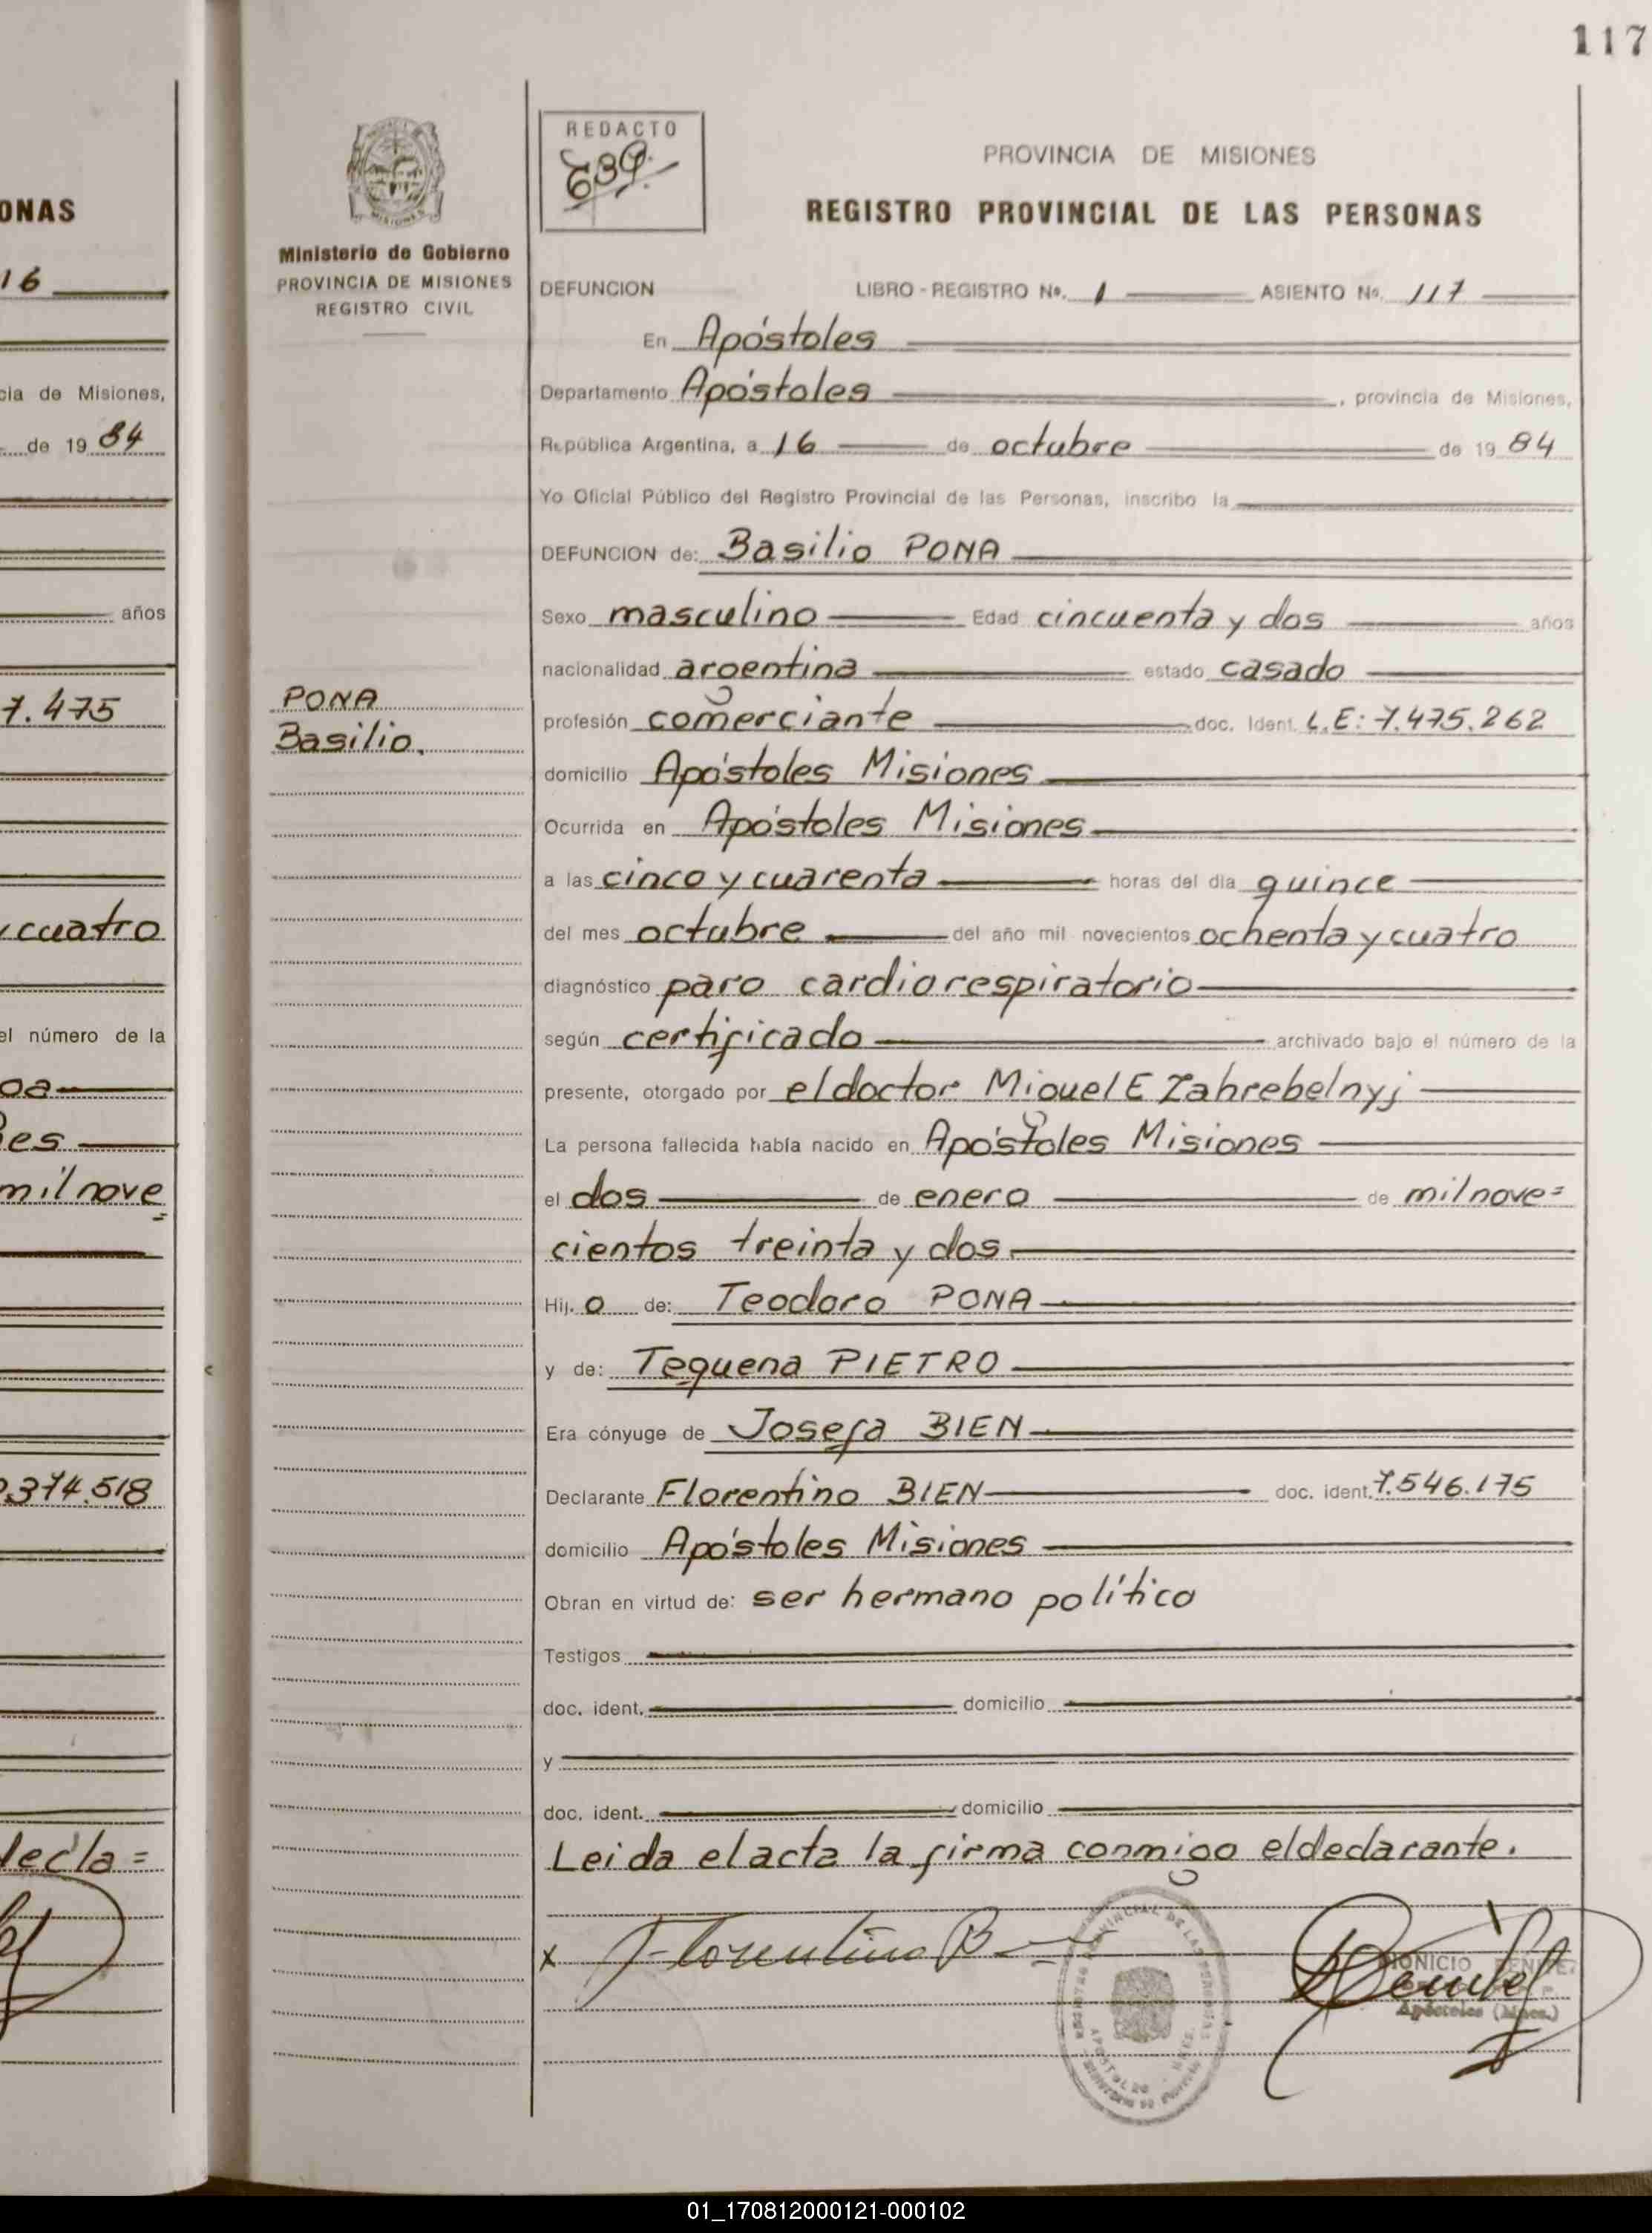 117
ONAS
16
cia de Misiones,
de 19 84
años
7.475
y cuatro
el número de la
oa
es
mil nove
=
374.518
decla=
Ministerio de Gobierno
PROVINCIA DE MISIONES
REGISTRO CIVIL
PONA
Basilio.
REDACTO
PROVINCIA DE MISIONES
REGISTRO PROVINCIAL DE LAS PERSONAS
DEFUNCION LIBRO - REGISTRO No. 1 ASIENTO No. 117
En Apóstoles
Departamento Apóstoles, provincia de Misiones,
República Argentina, a 16 de octubre de 19 84
Yo Oficial Público del Registro Provincial de las Personas, inscribo la
DEFUNCION de: Basilio PONA
Sexo masculino Edad cincuenta y dos años
nacionalidad argentina estado casado
profesión comerciante doc. Ident. L.E: 7.475.262
domicilio Apóstoles Misiones
Ocurrida en Apóstoles Misiones
a las cinco y cuarenta horas del día quince
del mes octubre del año mil novecientos ochenta y cuatro
diagnóstico paro cardiorespiratorio
según certificado archivado bajo el número de la
presente, otorgado por el doctor Miguel E Zahrebelnyj
La persona fallecida había nacido en Apóstoles Misiones
el dos de enero de mil nove=
cientos treinta y dos
Hij. o de: Teodoro PONA
y de: Tequena PIETRO
Era cónyuge de Josefa BIEN
Declarante Florentino BIEN doc. ident. 7.546.175
domicilio Apóstoles Misiones
Obran en virtud de: ser hermano político
Testigos
doc. ident. domicilio
y
doc. ident. domicilio
Leida el acta la firma conmigo el declarante.
x Florentino B
DIONICIO BENITEZ
Apóstoles (Mnes.)
01_170812000121-000102